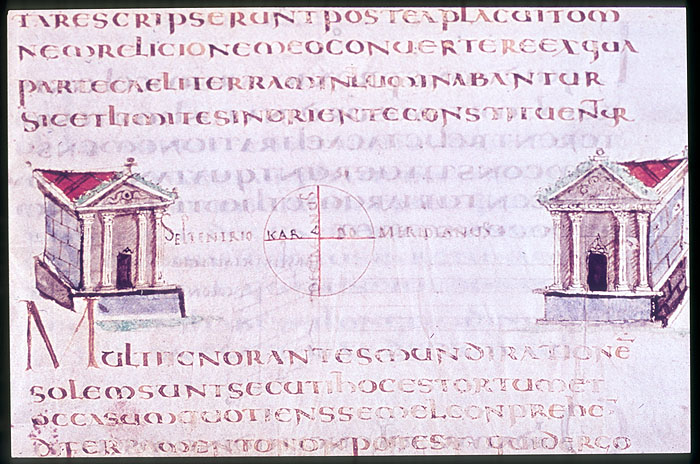 TARESCRIPSERUNTPOSTEAPLACUITOM
NEMRELIGIONEMEOCONUERTEREEXQUA
PARTECAELITERRAMINLUMINABANTUR
SICETLIMITESINORIENTECONSTITUENTUR
SEPTENTRIO KAR DO MERIDIANUS
MULTIIGNORANTESMUNDIRATIONE
SOLEMSUNTSECUTIHOCESTORTUMET
OCCASUMQUOTIENSSEMELCONPREHE